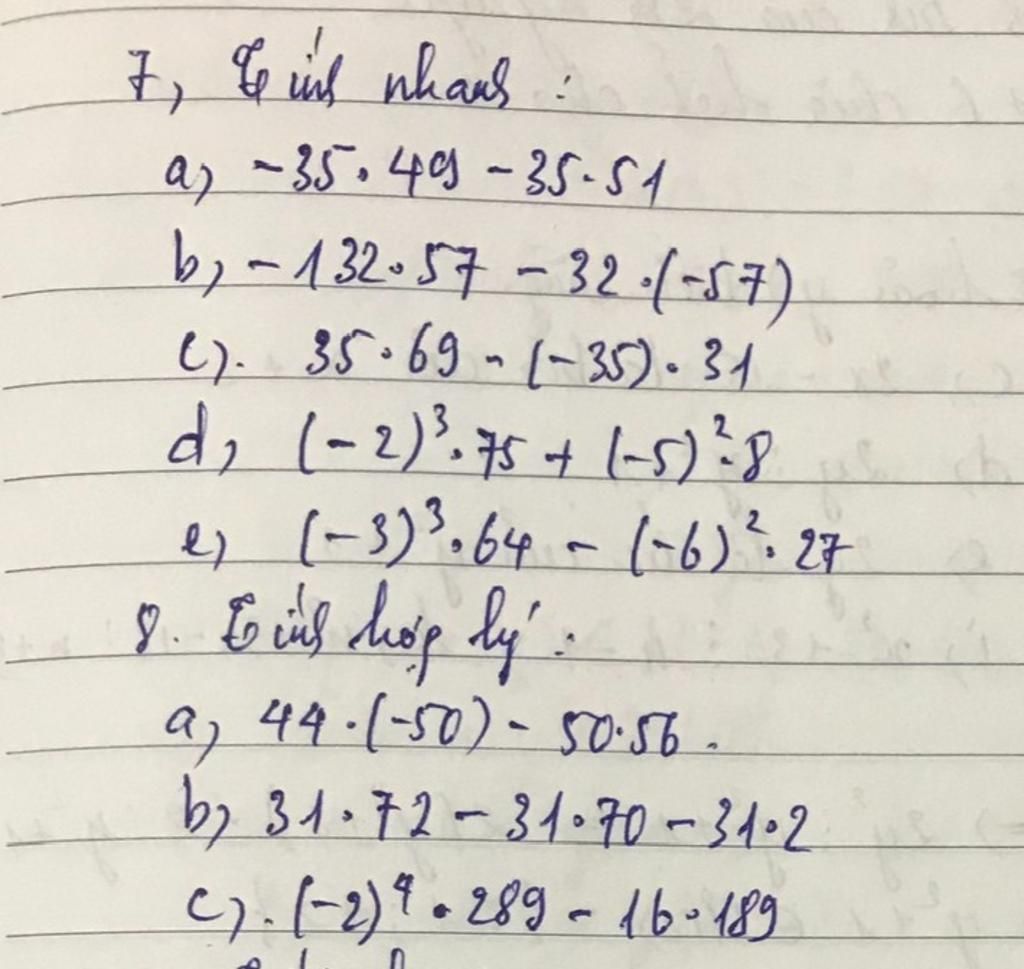 7, Tính nhanh :
a, -35.49 - 35.51
b, -132.57 - 32.(-57)
c). 35.69 - (-35).31
d, (-2)³.75 + (-5)².8
e) (-3)³.64 - (-6)².27
8. Tính hợp lý :
a, 44.(-50) - 50.56.
b, 31.72 - 31.70 - 31.2
c). (-2)⁴.289 - 16.189